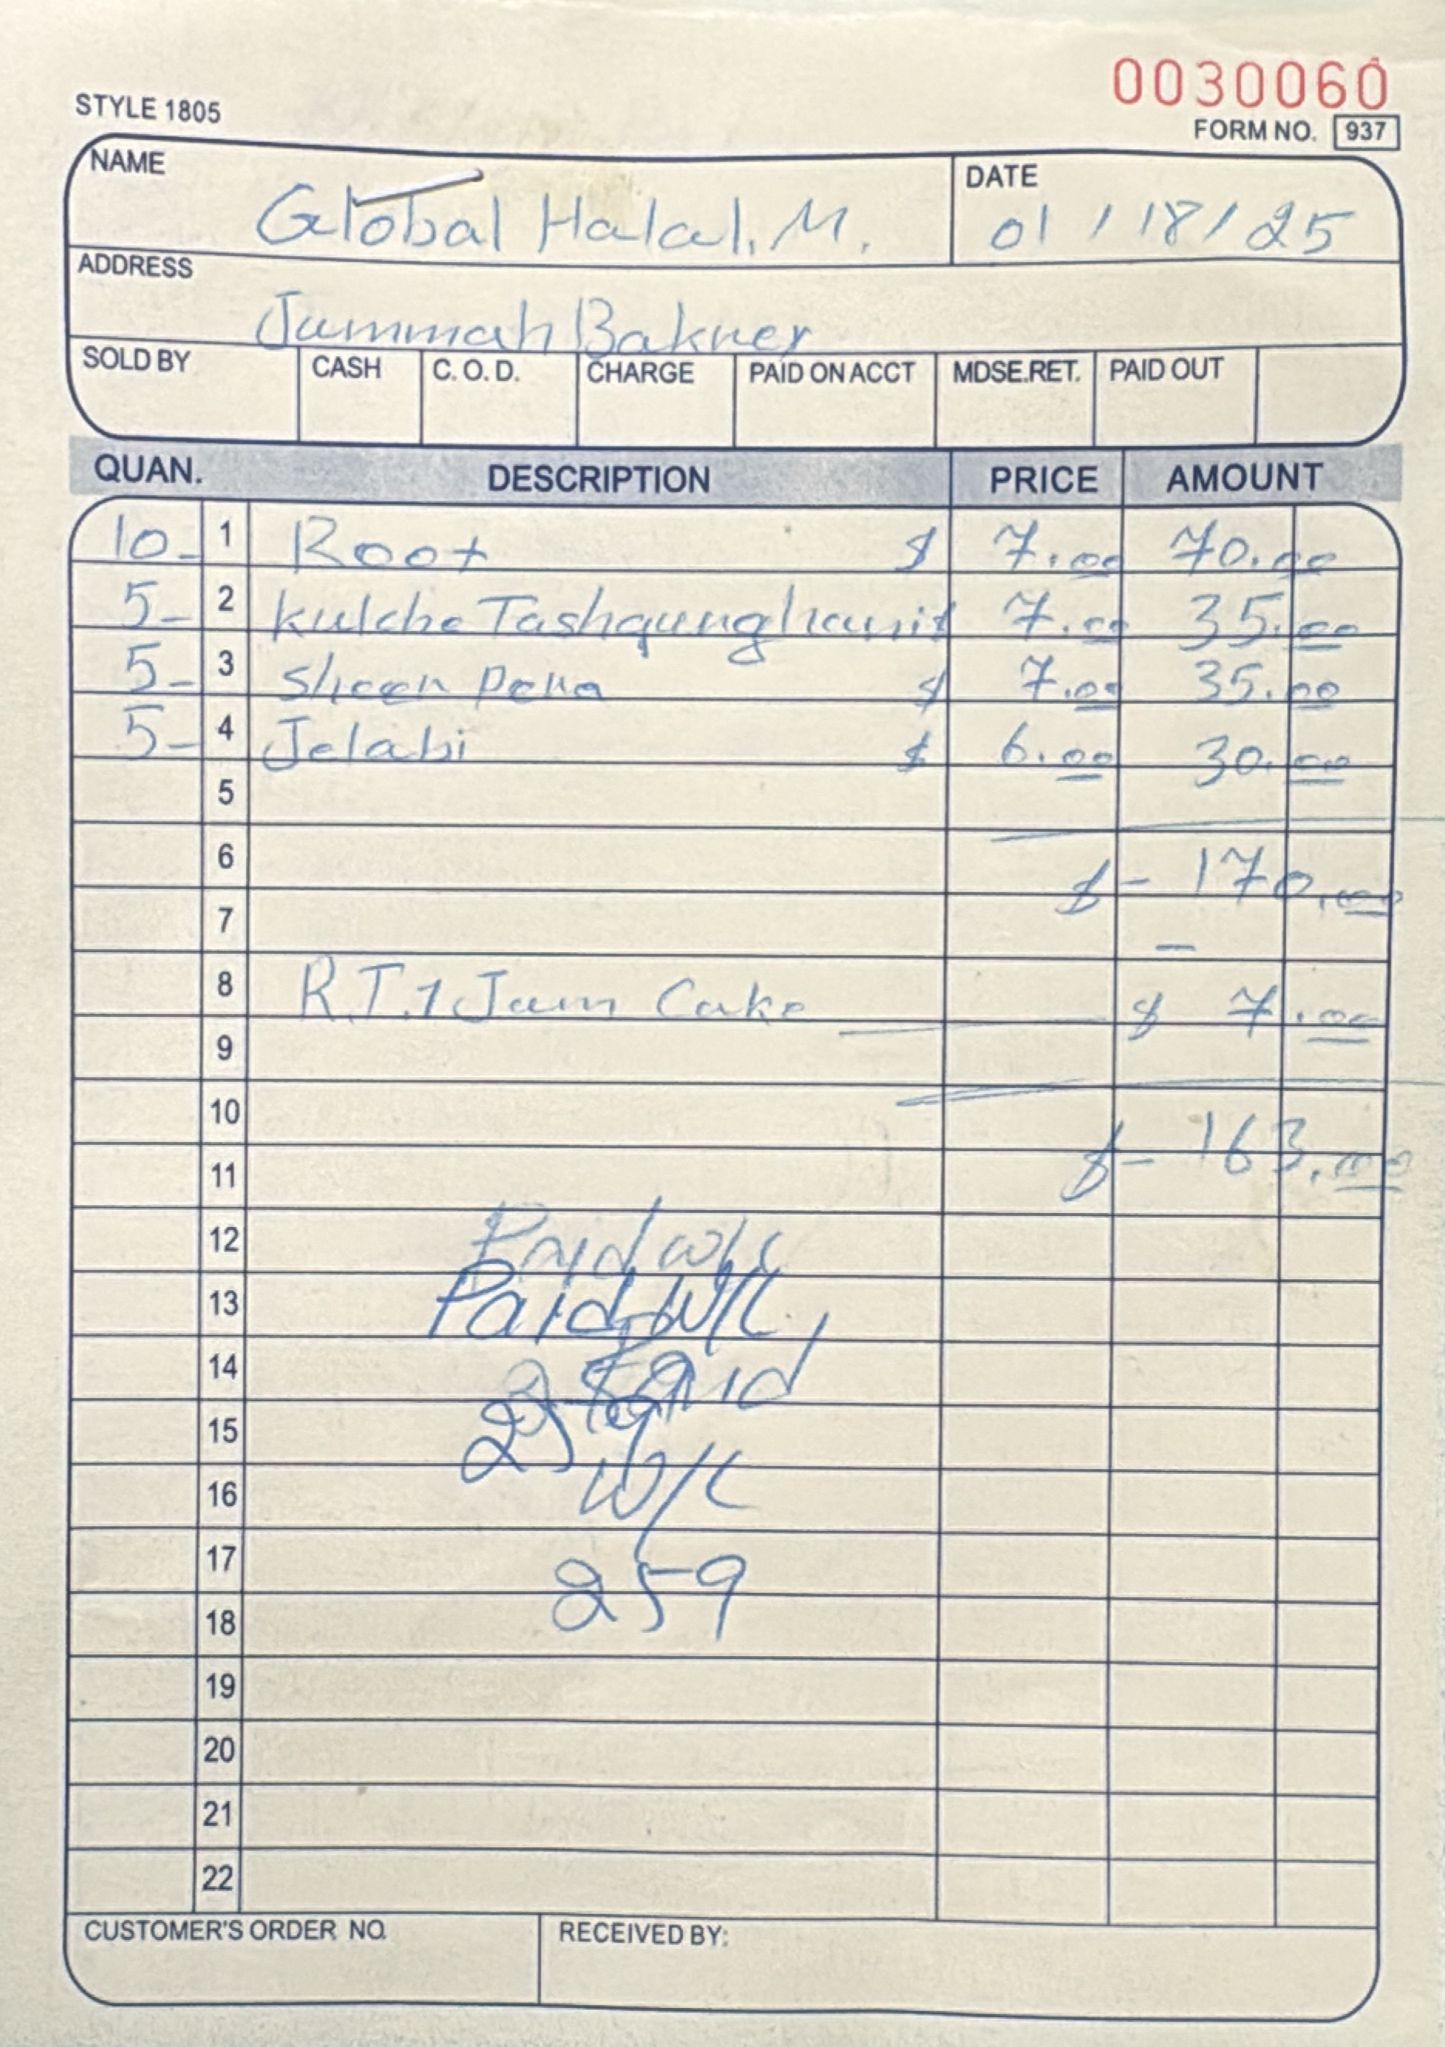 0030060
STYLE 1805
FORM NO. 937
NAME Global Halal. M.
DATE 01/18/25
ADDRESS Jummah Bakner
SOLD BY CASH C. O. D. CHARGE PAID ON ACCT MDSE.RET. PAID OUT
QUAN. DESCRIPTION PRICE AMOUNT
10- 1 Root $ 7.00 70.00
5- 2 Kulche Tashqurghani $ 7.00 35.00
5- 3 Sheer pera $ 7.00 35.00
5- 4 Jelabi $ 6.00 30.00
5
6 $- 170.00
7 -
8 R.T. 1 Jam Cake $ 7.00
9
10
11 $- 163.00
12 Paid w/c
13 Paid W/C
14 259 Paid
15 259
16 W/C
17
18 259
19
20
21
22
CUSTOMER'S ORDER NO. RECEIVED BY: